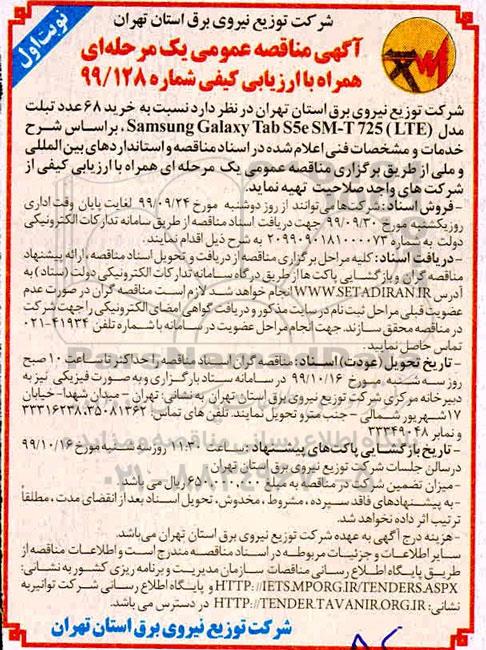 نوبت اول
شرکت توزیع نیروی برق استان تهران
آگهی مناقصه عمومی یک مرحله‌ای
همراه با ارزیابی کیفی شماره ۹۹/۱۲۸
شرکت توزیع نیروی برق استان تهران در نظر دارد نسبت به خرید ۶۸ عدد تبلت
مدل Samsung Galaxy Tab S5e SM-T 725 ( LTE)، بر اساس شرح
خدمات و مشخصات فنی اعلام شده در اسناد مناقصه و استانداردهای بین المللی
و ملی از طریق برگزاری مناقصه عمومی یک مرحله ای همراه با ارزیابی کیفی از
شرکت های واجد صلاحیت تهیه نماید.
- فروش اسناد: شرکت‌ها می توانند از روز دوشنبه مورخ ۹۹/۰۹/۲۴ لغایت پایان وقت اداری
روز یکشنبه مورخ ۹۹/۰۹/۳۰ جهت دریافت اسناد مناقصه از طریق سامانه تدارکات الکترونیکی
دولت به شماره ۲۰۹۹۰۹۰۱۸۱۰۰۰۰۷۳ به شرح ذیل اقدام نمایند.
- دریافت اسناد: کلیه مراحل برگزاری مناقصه از دریافت و تحویل اسناد مناقصه، ارائه پیشنهاد
مناقصه گران و بازگشایی پاکت ها از طریق درگاه سامانه تدارکات الکترونیکی دولت (ستاد) به
آدرس WWW.SETADIRAN.IR انجام خواهد شد. لازم است مناقصه گران در صورت عدم
عضویت قبلی مراحل ثبت نام در سایت مذکور و دریافت گواهی امضای الکترونیکی را جهت شرکت
در مناقصه محقق سازند. جهت انجام مراحل عضویت در سامانه با شماره تلفن ۴۱۹۳۴-۰۲۱
تماس حاصل نمایید.
- تاریخ تحویل (عودت) اسناد: مناقصه گران اسناد مناقصه را حداکثر تا ساعت ۱۰ صبح
روز سه شنبه مورخ ۹۹/۱۰/۱۶ در سامانه ستاد بارگزاری و به صورت فیزیکی نیز به
دبیرخانه مرکزی شرکت توزیع نیروی برق استان تهران به نشانی: تهران - میدان شهدا- خیابان
۱۷ شهریور شمالی - جنب مترو تحویل نمایند. تلفن های تماس: ۳۵۰۸۱۳۶۲، ۳۳۳۱۶۲۳۸
و نمابر ۳۳۳۴۹۰۴۸
- تاریخ بازگشایی پاکت‌های پیشنهاد: ساعت ۱۱:۳۰ روز سه شنبه مورخ ۹۹/۱۰/۱۶
در سالن جلسات شرکت توزیع نیروی برق استان تهران
- میزان تضمین شرکت در مناقصه به مبلغ ریال می باشد.
- به پیشنهادهای فاقد سپرده، مشروط، مخدوش، تحویل اسناد بعد از انقضای مدت، مطلقاً
ترتیب اثر داده نخواهد شد.
- هزینه درج آگهی به عهده شرکت توزیع نیروی برق استان تهران می‌باشد.
سایر اطلاعات و جزئیات مربوطه در اسناد مناقصه مندرج است و اطلاعات مناقصه از
طریق پایگاه اطلاع رسانی مناقصات سازمان مدیریت و برنامه ریزی کشور به نشانی:
HTTP://IETS.MPORG.IR/TENDERS.ASPX و پایگاه اطلاع رسانی شرکت توانیر به
نشانی: HTTP://TENDER.TAVANIR.ORG.IR در دسترس می باشد.
شرکت توزیع نیروی برق استان تهران